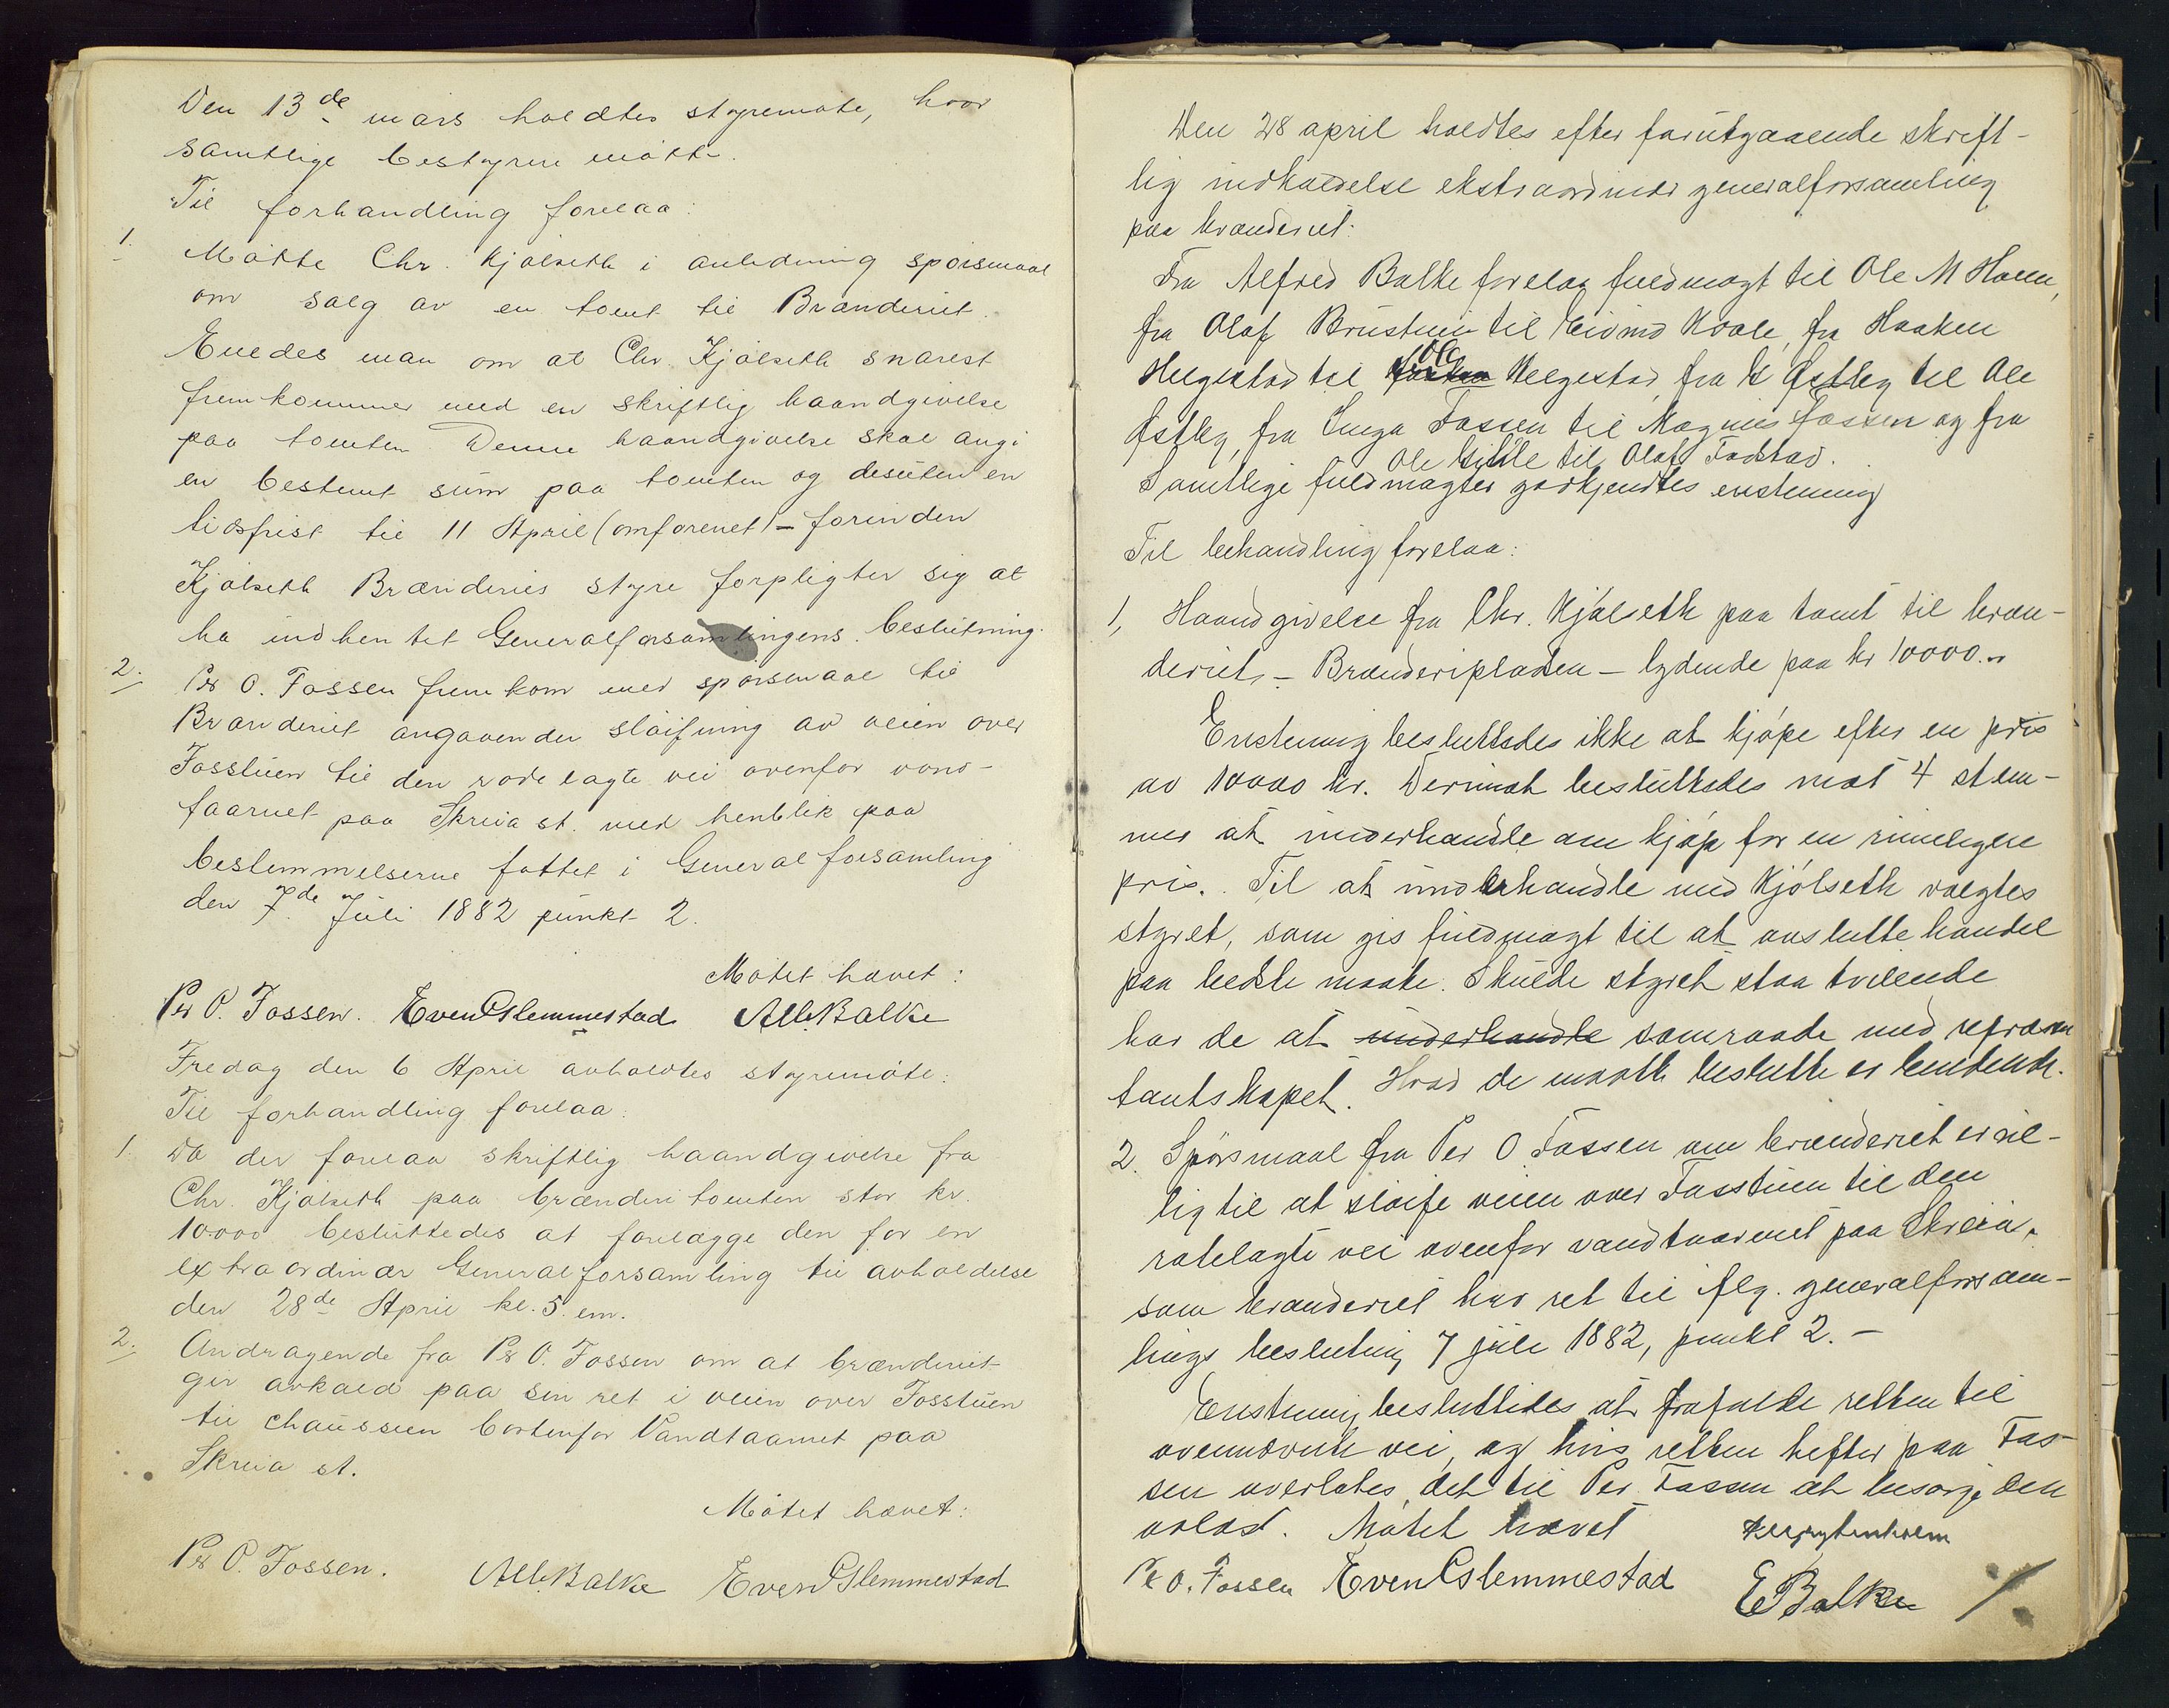 Den 13de mars holdtes styremøte, hvor
samtlige bestyrere møtte.
Til forhandling forelaa:
1. Møtte Chr. Kjølseth i anledning spørsmaal
om salg av en tomt til Brænderiet.
Enedes man om at Chr. Kjølseth snarest
fremkommer med en skriftlig haandgivelse
paa tomten. Denne haandgivelse skal angi
en bestemt sum paa tomten og desuten en
tidsfrist til 11 April (omforenet) – forinden
Kjølseth Brænderies styre forpligter sig at
ha indhentet Generalforsamlingens beslutning.
2. Pr O. Fossen fremkom med spørsmaal til
Brænderiet angaaende sløifning av veien over
Fosstuen til den rodelagte vei ovenfor vand-
taarnet paa Skreia st. med henblik paa
bestemmelserne fattet i Generalforsamling
den 7de Juli 1882 punkt 2.
Møtet hævet:
Pr O. Fossen. Even Glemmestad Alb. Balke
Fredag den 6 April avholdtes styremøte:
Til forhandling forelaa:
1. Da der forelaa skriftlig haandgivelse fra
Chr. Kjølseth paa brænderitomten stor kr.
10000 besluttedes at forelægge den for en
extraordinær Generalforsamling til avholdelse
den 28de April kl. 5 em.
2. Andragende fra Pr O. Fossen om at brænderiet
gir avkald paa sin ret i veien over Fosstuen
til chausseen bortenfor Vandtaarnet paa
Skreia st.
Møtet hævet:
Pr O. Fossen. Alb. Balke Even Glemmestad
Den 28 april holdtes efter forutgaaende skrift-
lig indkaldelse ekstraordinær generalforsamling
paa brænderiet:
Fra Alfred Balke forelaa fuldmagt til Ole M Holm,
fra Olaf til Eivind Kvale, fra Haaken
Helgestad til Ole Helgestad, fra K Østley til Ole
Østley, fra Inga Fossen til Magnus Fossen og fra
Ole til Olaf Fodstad.
Samtlige fuldmagter godkjendtes enstemmig
Til behandling forelaa:
1, Haandgivelse fra Chr. Kjølseth paa tomt til bræn-
deriet, – Brænderipladsen – lydende paa kr 10000.-
Enstemmig besluttedes ikke at kjøpe efter en pris
av 10000 kr. Derimot besluttedes mot 4 stem-
mer at underhandle om kjøp for en rimeligere
pris. Til at underhandle med Kjølseth valgtes
styret, som gis fuldmagt til at avslutte handel
paa bedste maate. Skulde styret staa tvilende
har de at underhandle samraade med repræsen
tantskapet. Hvad de maatte beslutte er bindende.
2. Spørsmaal fra Per O Fossen om brænderiet er vil-
lig til at sløife veien over Fosstuen til den
rodelagte vei ovenfor vandtaarnet paa Skreia,
som brænderiet har ret til iflg. generalforsam-
lings beslutning 7 juli 1882, punkt 2. –
Enstemmig besluttedes at frafalde retten til
ovennævnte vei, og hvis retten hefter paa Fos-
sen overlates det til Per Fossen at besørge den
avløst. Møtet hævet
Pr O. Fossen Even Glemmestad
E Balke